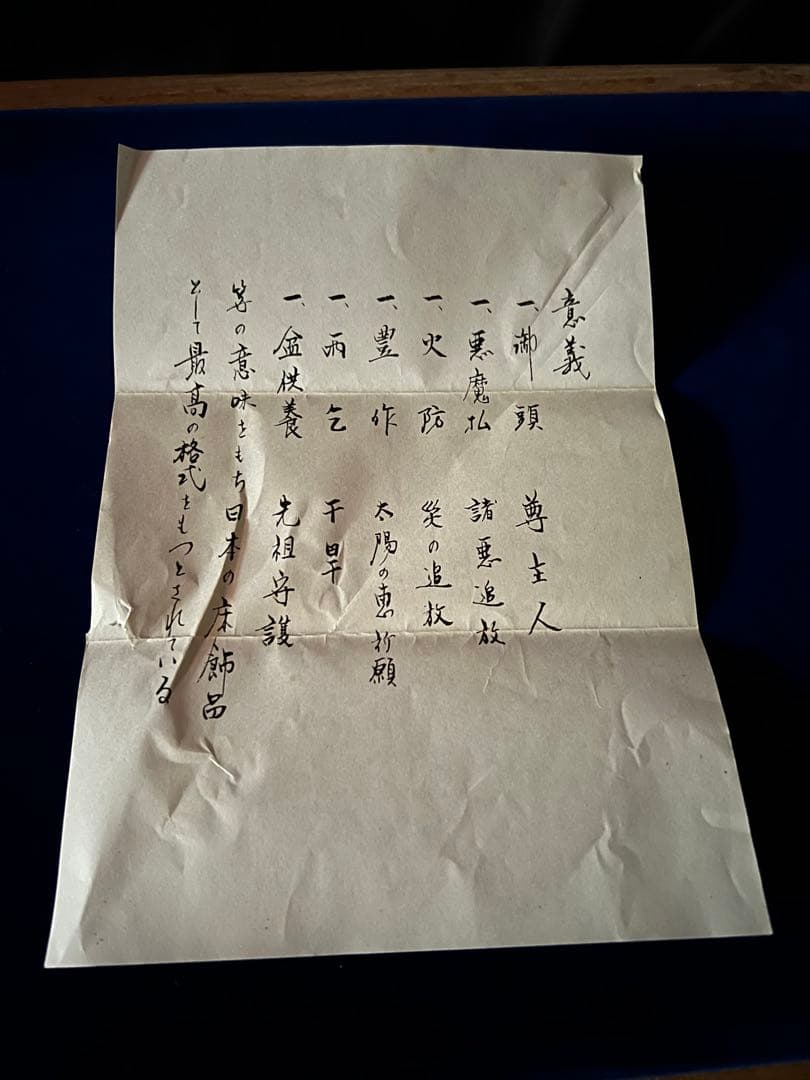 意義
一、御頭 尊主人
一、悪魔払 諸悪追放
一、火防 災の追放
一、豊作 太陽の恵祈願
一、雨乞 干旱
一、盆供養 先祖守護
等の意味をもち日本の床飾品
として最高の格式をもつとされている